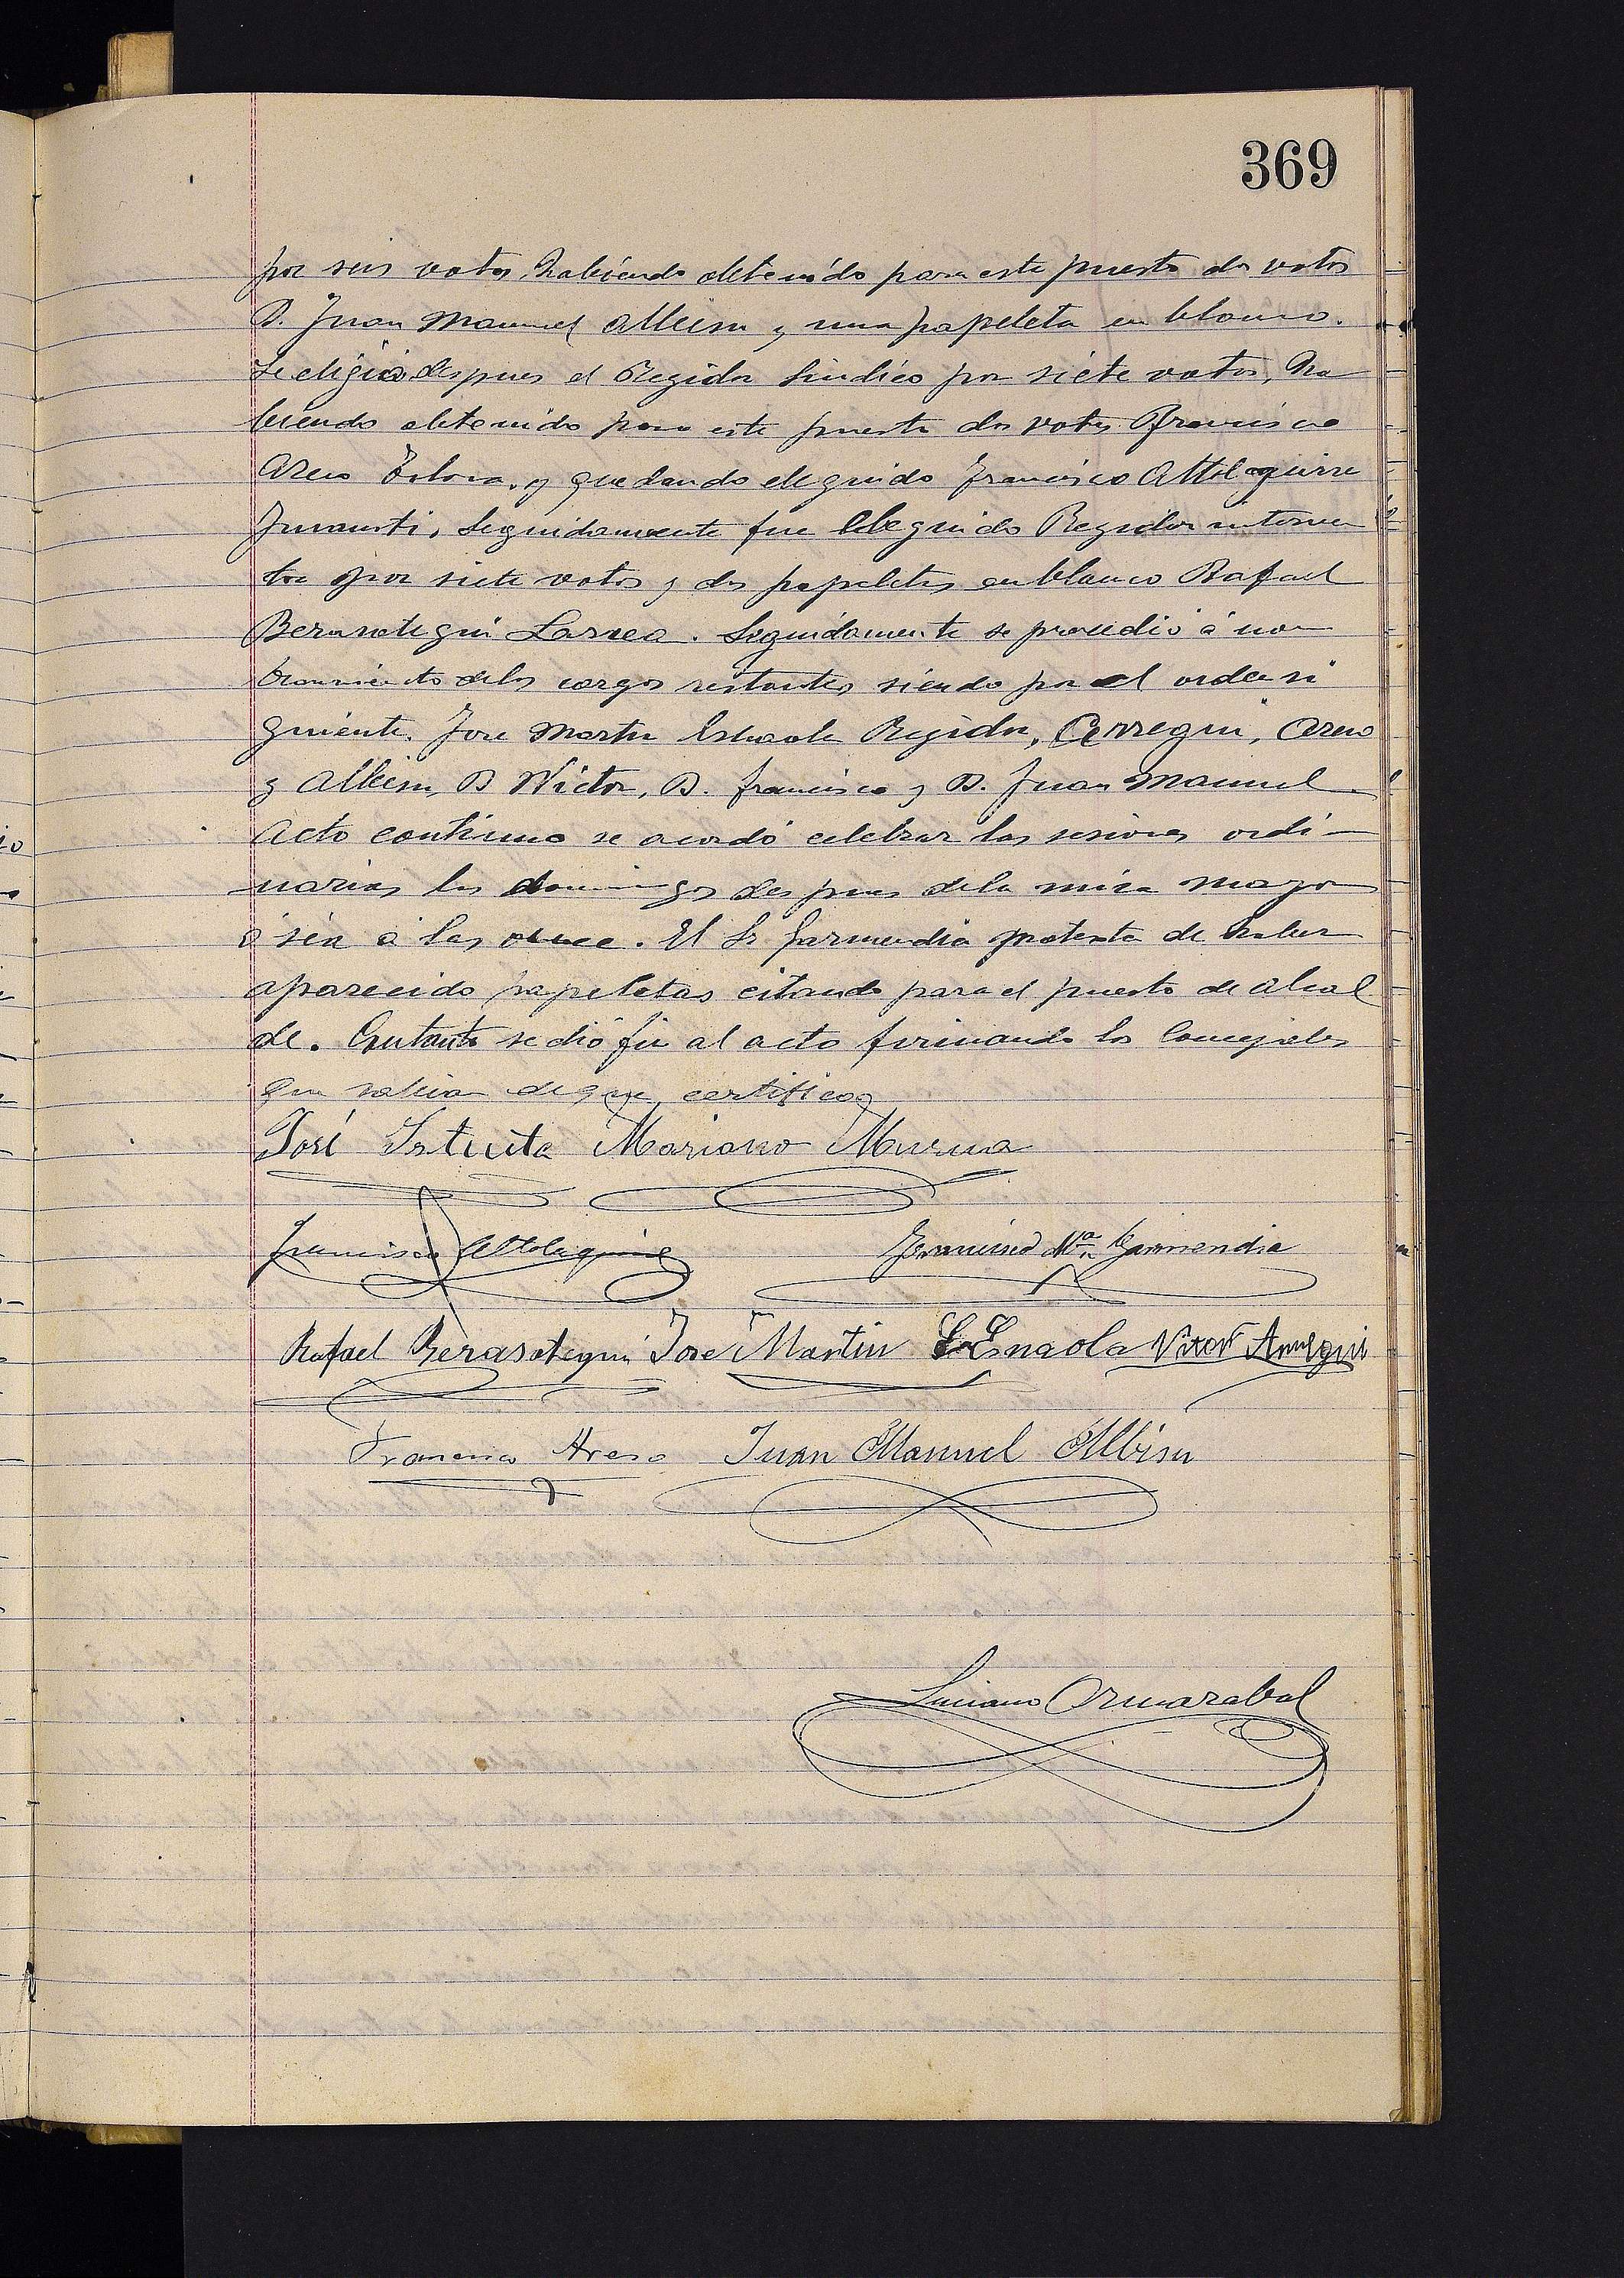 369
por seis votos, habiendo obtenido para este puesto dos votos
D. Juan Manuel Albisu y una papeleta en blanco.
Se eligió despues el Regidor Sindico por siete votos, ha
biendo obtenido para este puesto dos votos Francisco
Areso y quedando eleguido Francisco Attolaguirre
Seguidamente fue eleguido Regidor interven
tor por siete votos y dos papeletas en blanco Rafael
Berasategui Larrea. Seguidamente se procedió á nom
bramiento delos cargos restantes siendo por el orden si
guiente. Jose Martin Regidor, Areso
y Albisu, D Victor, D. Francisco y D. Juan Manuel
Acto continuo se acordó celebrar las sesiones ordi-
narias los domingos despues dela misa mayor
ó sea á las once. El Sr Garmendia protesta de haber
aparecido papeletas citando para el puesto de alcal
de. Entanto se dió fin al acto firmando los Concejales
que sabian de que certifico
José Mariano Murua
Francisco Attolaguirre Francisco Mª Garmendia
Rafael Berasategui Jose Martin Victor
Francisco Areso Juan Manuel Albisu
Luciano Ormazabal